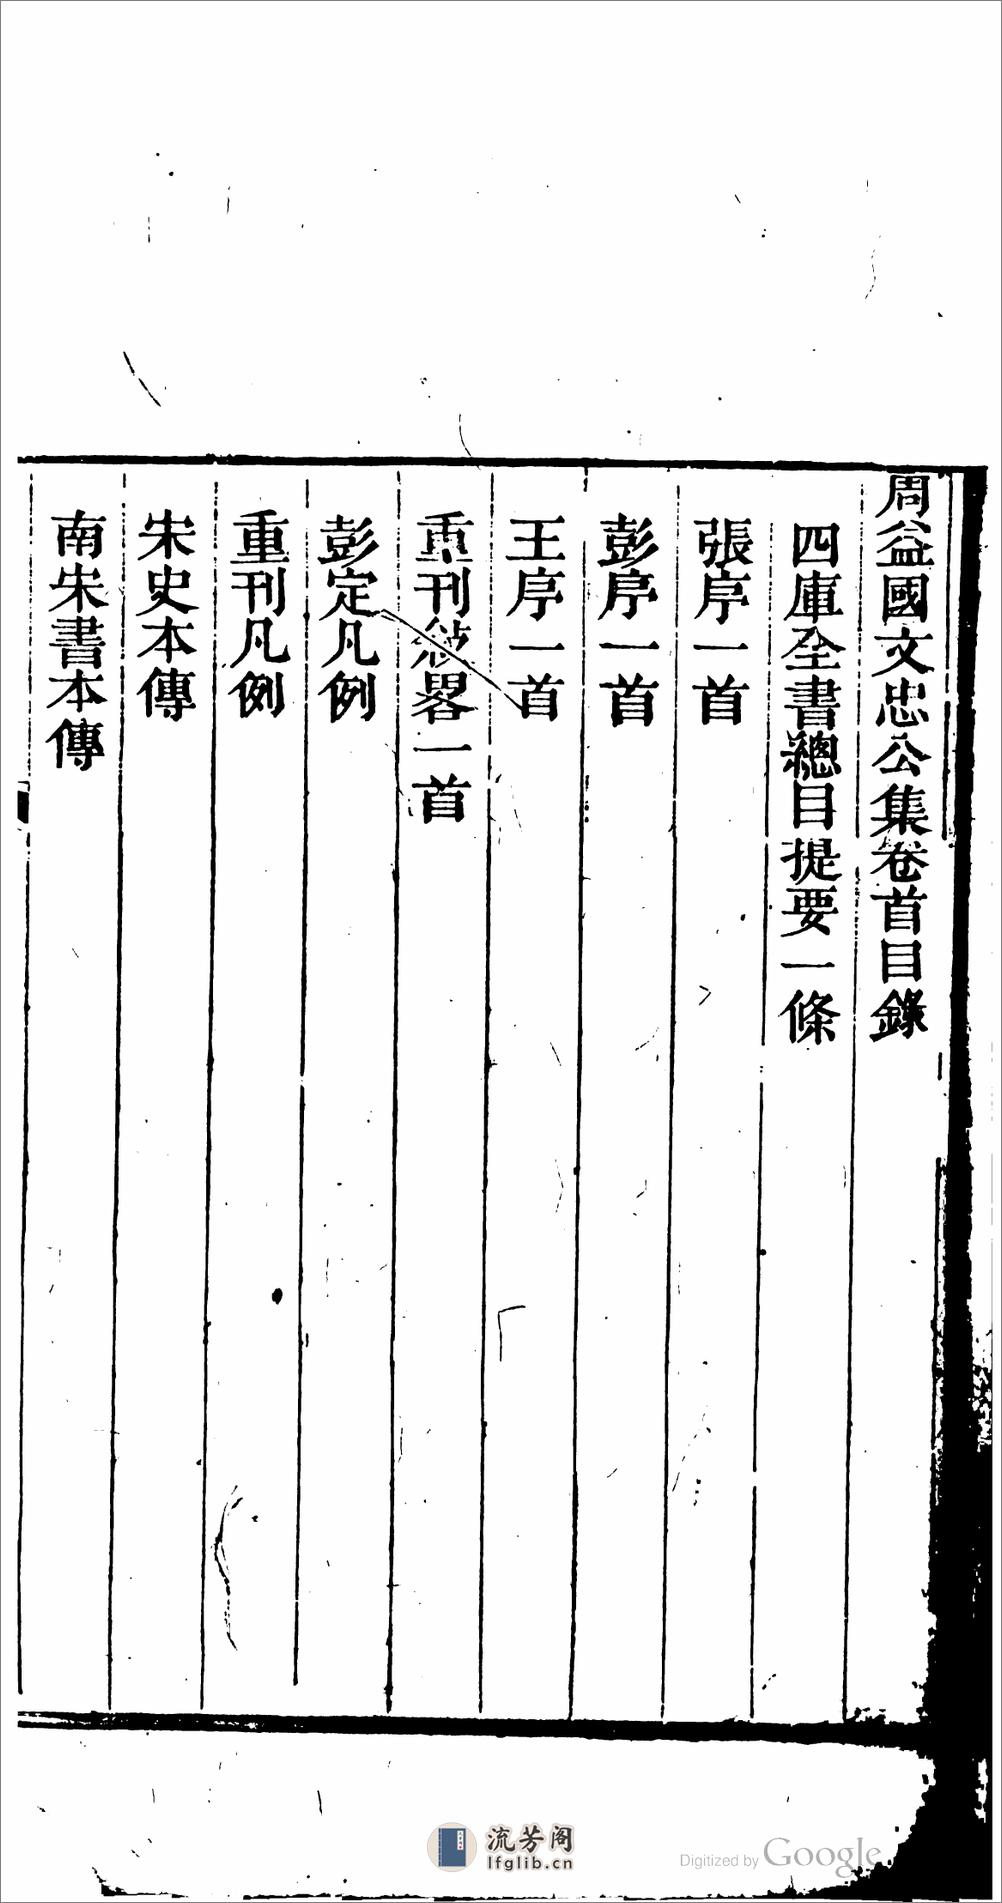 周益國文忠公集卷首目錄
四庫全書總目提要一條
張序一首
彭序一首
王序一首
重刊敘畧一首
彭定凡例
重刊凡例
宋史本傳
南宋書本傳
流芳阁
lfglib.cn
Digitized by Google